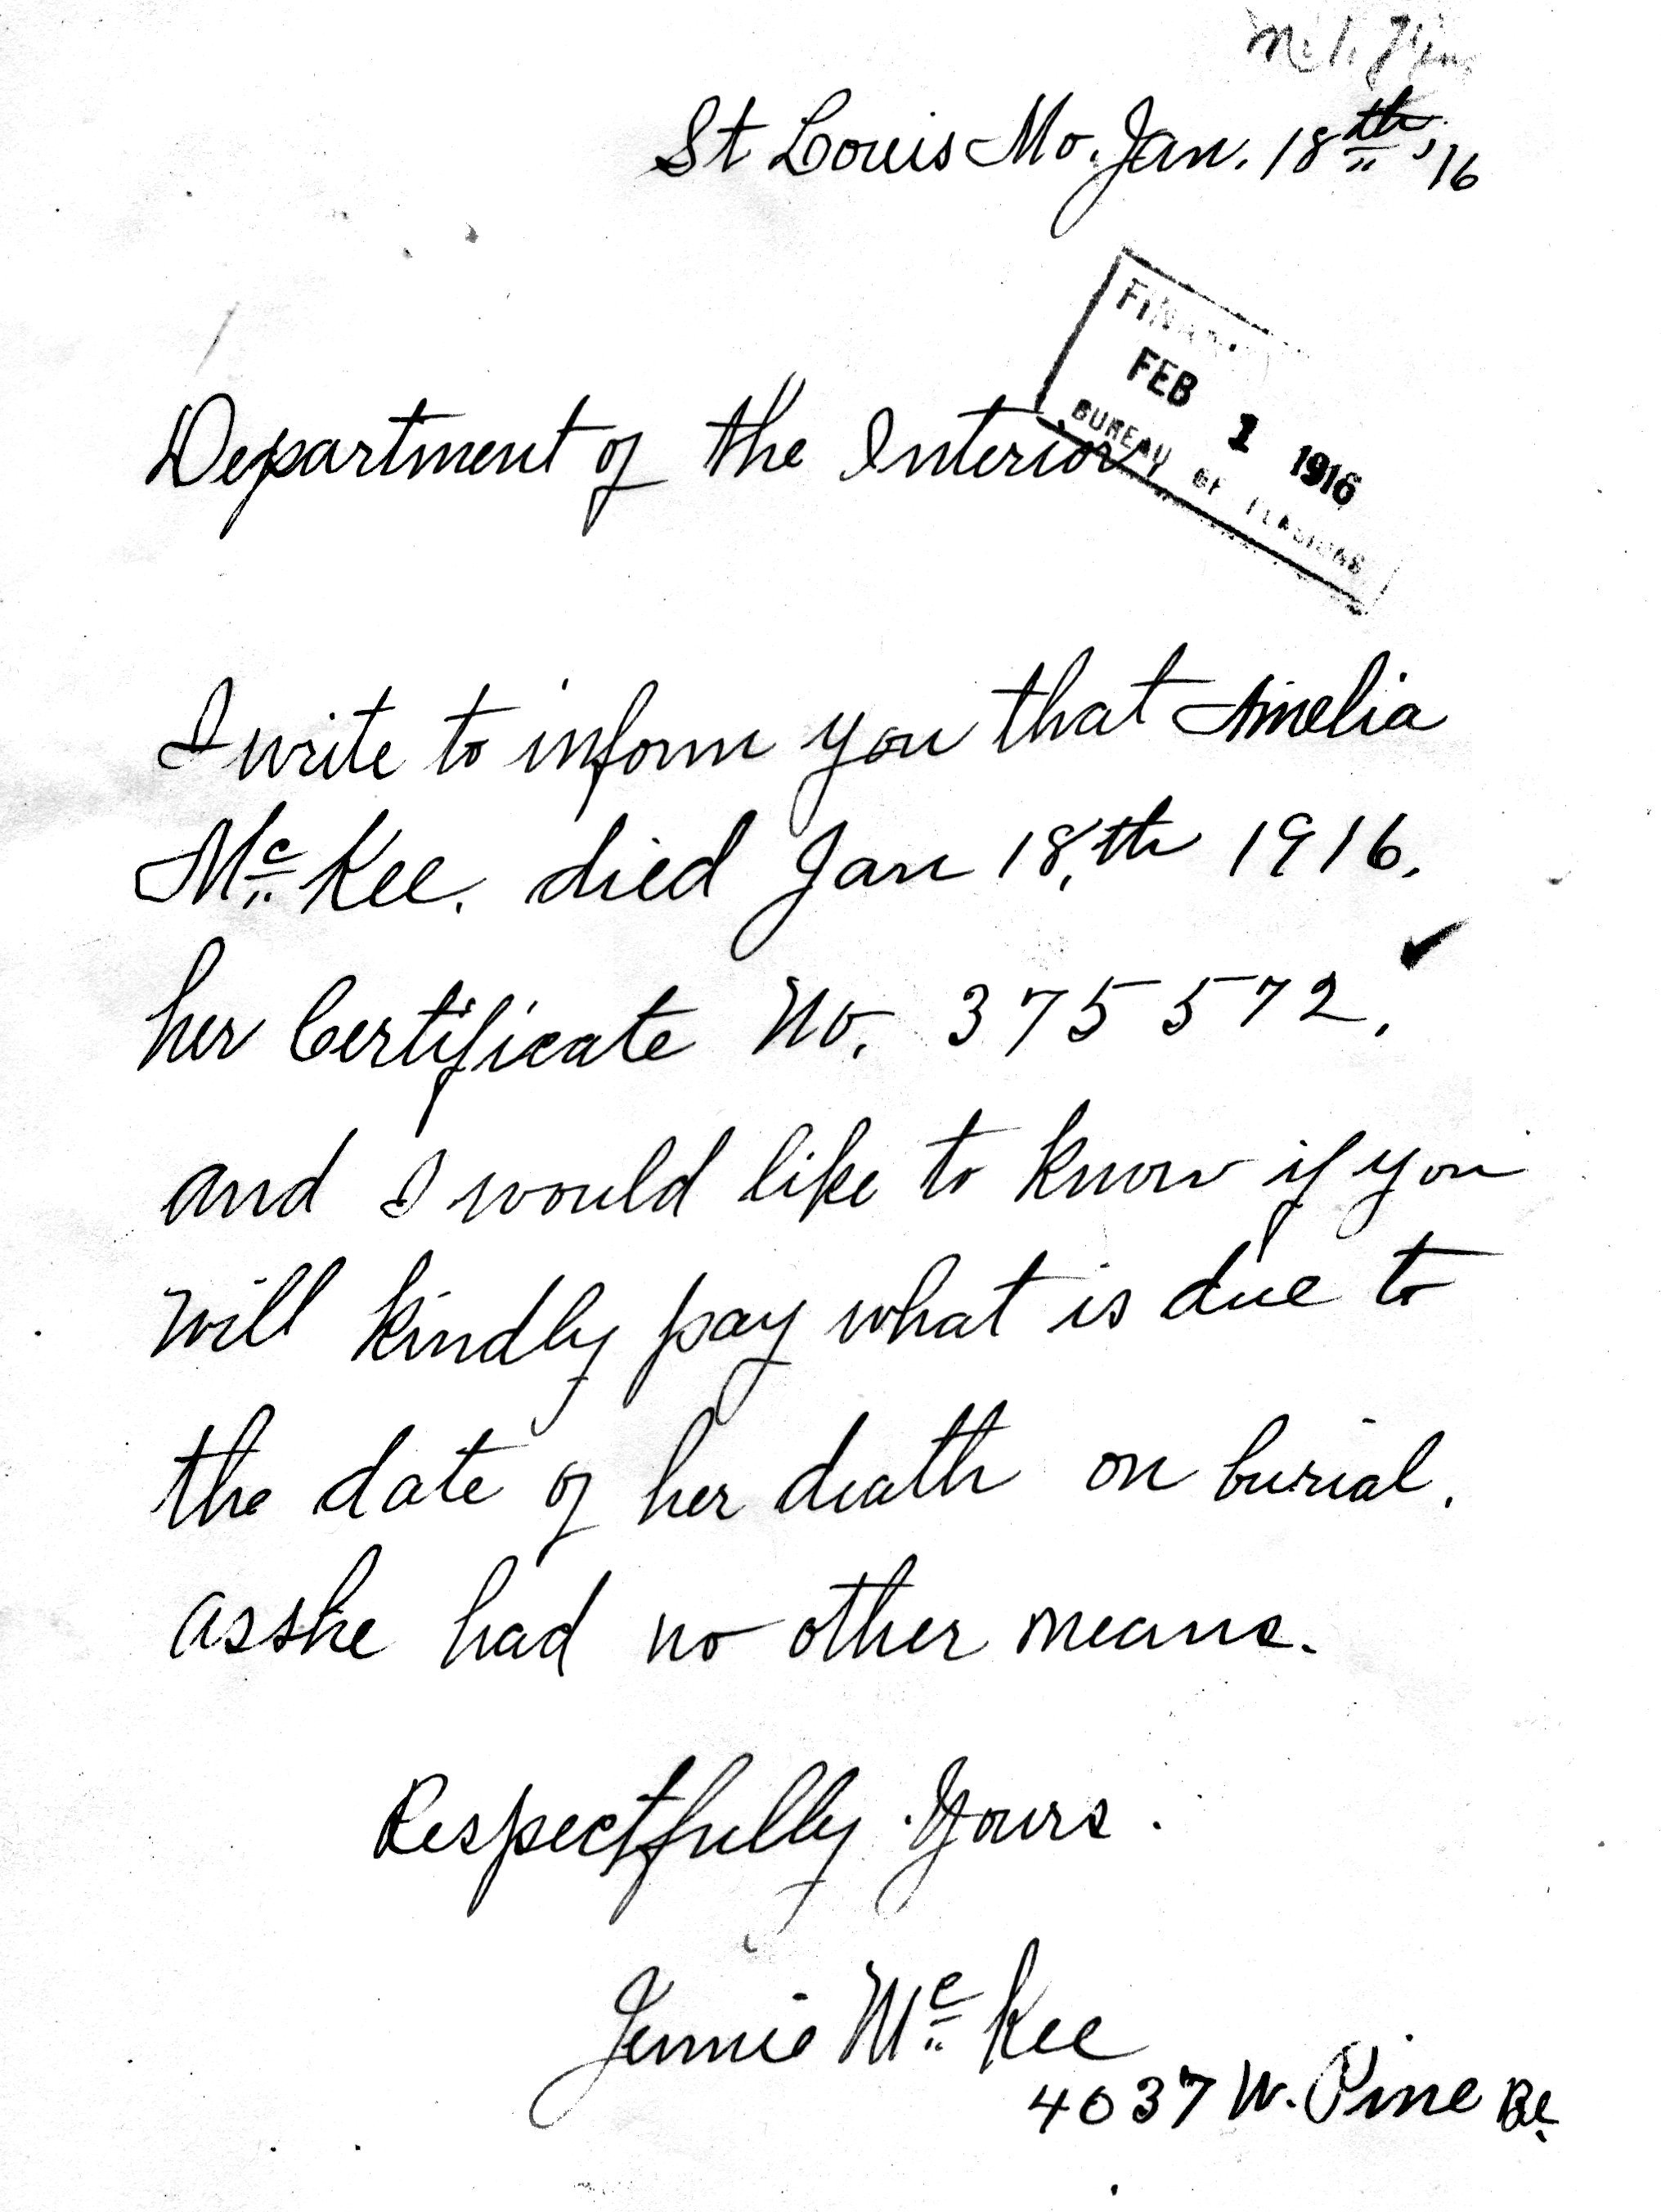 St Louis Mo. Jan. 18th '16
FEB 1 1916
BUREAU OF PENSIONS
Department of the Interior
I write to inform you that Amelia
McKee. died Jan 18,th 1916.
her Certificate No. 375572.
and I would like to know if you
will kindly pay what is due to
the date of her death on burial.
as she had no other means.
Respectfully Yours.
Jennie McKee
4037 W. Pine Bl.